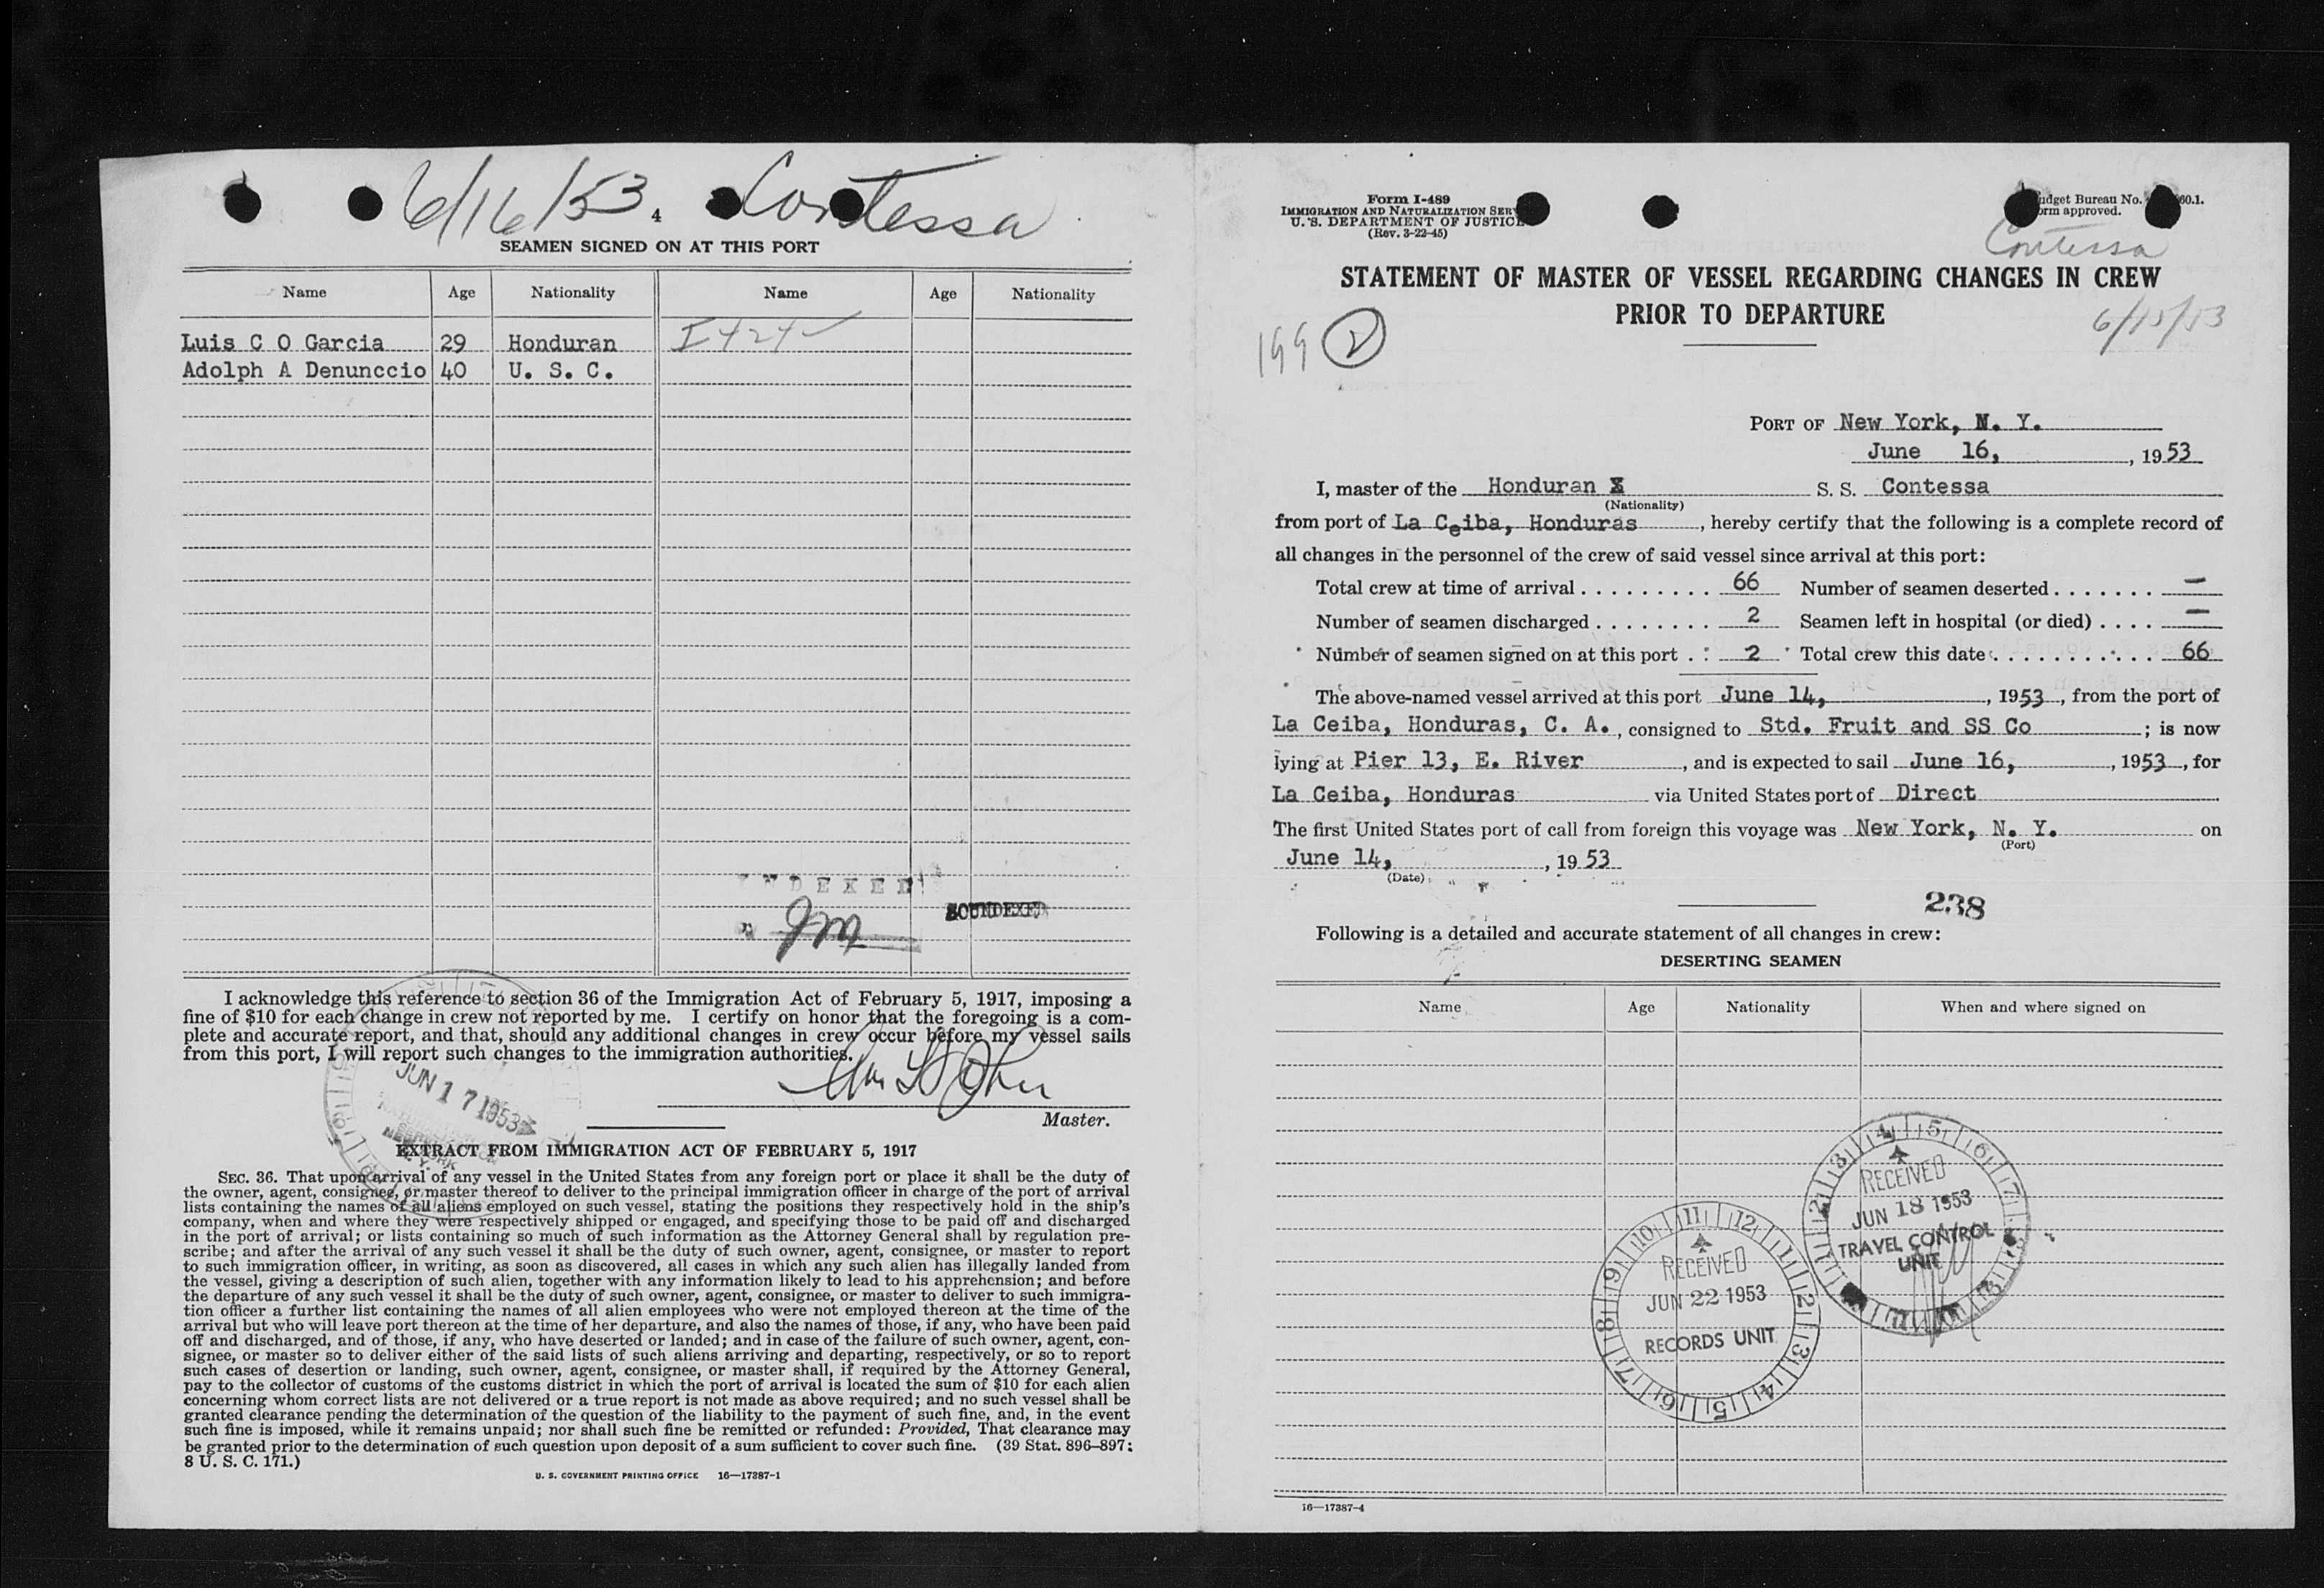 6/16/53 Contessa
4
SEAMEN SIGNED ON AT THIS PORT
Name Age Nationality Name Age Nationality
Luis C O Garcia 29 Honduran I424
Adolph A Denunccio 40 U. S. C.
INDEXED
JM
SOUNDEXED
I acknowledge this reference to section 36 of the Immigration Act of February 5, 1917, imposing a
fine of $10 for each change in crew not reported by me. I certify on honor that the foregoing is a com-
plete and accurate report, and that, should any additional changes in crew occur before my vessel sails
from this port, I will report such changes to the immigration authorities.
JUN 17 1953
NEW YORK
N. Y.
Master.
EXTRACT FROM IMMIGRATION ACT OF FEBRUARY 5, 1917
SEC. 36. That upon arrival of any vessel in the United States from any foreign port or place it shall be the duty of
the owner, agent, consignee, or master thereof to deliver to the principal immigration officer in charge of the port of arrival
lists containing the names of all aliens employed on such vessel, stating the positions they respectively hold in the ship's
company, when and where they were respectively shipped or engaged, and specifying those to be paid off and discharged
in the port of arrival; or lists containing so much of such information as the Attorney General shall by regulation pre-
scribe; and after the arrival of any such vessel it shall be the duty of such owner, agent, consignee, or master to report
to such immigration officer, in writing, as soon as discovered, all cases in which any such alien has illegally landed from
the vessel, giving a description of such alien, together with any information likely to lead to his apprehension; and before
the departure of any such vessel it shall be the duty of such owner, agent, consignee, or master to deliver to such immigra-
tion officer a further list containing the names of all alien employees who were not employed thereon at the time of the
arrival but who will leave port thereon at the time of her departure, and also the names of those, if any, who have been paid
off and discharged, and of those, if any, who have deserted or landed; and in case of the failure of such owner, agent, con-
signee, or master so to deliver either of the said lists of such aliens arriving and departing, respectively, or so to report
such cases of desertion or landing, such owner, agent, consignee, or master shall, if required by the Attorney General,
pay to the collector of customs of the customs district in which the port of arrival is located the sum of $10 for each alien
concerning whom correct lists are not delivered or a true report is not made as above required; and no such vessel shall be
granted clearance pending the determination of the question of the liability to the payment of such fine, and, in the event
such fine is imposed, while it remains unpaid; nor shall such fine be remitted or refunded: Provided, That clearance may
be granted prior to the determination of such question upon deposit of a sum sufficient to cover such fine. (39 Stat. 896–897;
8 U. S. C. 171.)
U. S. GOVERNMENT PRINTING OFFICE 16—17387-1
Form I-489
IMMIGRATION AND NATURALIZATION SER
U. S. DEPARTMENT OF JUSTICE
(Rev. 3-22-45)
udget Bureau No. 60.1.
orm approved.
Contessa
STATEMENT OF MASTER OF VESSEL REGARDING CHANGES IN CREW
PRIOR TO DEPARTURE
6/15/53
199 2
PORT OF New York, N. Y.
June 16, , 1953
I, master of the Honduran S. S. Contessa
(Nationality)
from port of La Ceiba, Honduras , hereby certify that the following is a complete record of
all changes in the personnel of the crew of said vessel since arrival at this port:
Total crew at time of arrival . . . . . . . . . 66 Number of seamen deserted . . . . . . . —
Number of seamen discharged . . . . . . . . 2 Seamen left in hospital (or died) . . . . —
Number of seamen signed on at this port . . 2 Total crew this date . . . . . . . . . . 66
The above-named vessel arrived at this port June 14, , 1953, from the port of
La Ceiba, Honduras, C. A., consigned to Std. Fruit and SS Co ; is now
lying at Pier 13, E. River , and is expected to sail June 16, , 1953, for
La Ceiba, Honduras via United States port of Direct .
The first United States port of call from foreign this voyage was New York, N. Y. on
(Port)
June 14, , 1953
(Date)
238
Following is a detailed and accurate statement of all changes in crew:
DESERTING SEAMEN
Name Age Nationality When and where signed on
RECEIVED
JUN 18 1953
TRAVEL CONTROL
UNIT
RECEIVED
JUN 22 1953
RECORDS UNIT
16—17387-4